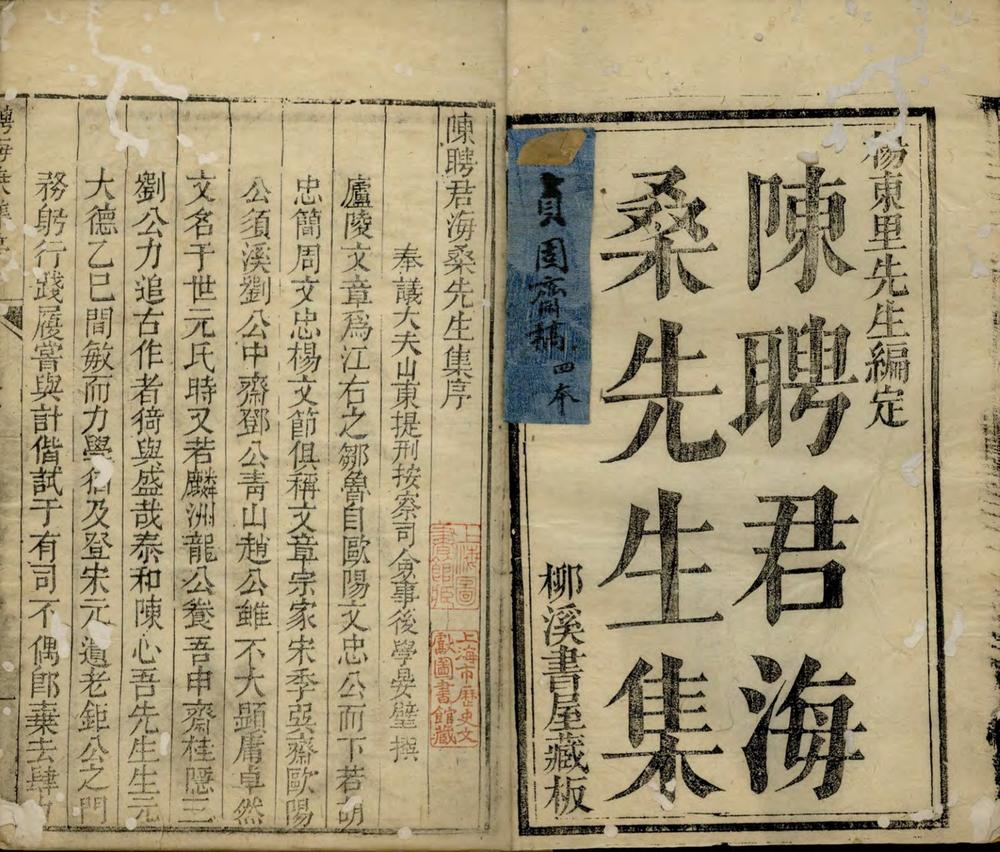 楊東里先生編定
陳聘君海
桑先生集
柳溪書屋藏板
貞固齋稿 四本
陳聘君海桑先生集序
奉議大夫山東提刑按察司僉事後學晏璧撰
廬陵文章爲江右之鄒魯自歐陽文忠公而下若胡
忠簡周文忠楊文節俱稱文章宗家宋季巽齋歐陽
公須溪劉公中齋鄧公青山趙公雖不大顯庸卓然
文名于世元氏時又若麟洲龍公養吾申齋桂隱三
劉公力追古作者猗與盛哉泰和陳心吾先生生元
大德乙巳間敏而力學猶及登宋元遺老鉅公之門
務躬行踐履嘗與計偕試于有司不偶卽棄去肆力
上海圖
書館藏
上海市歷史文
獻圖書館藏